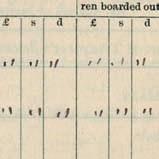 ren boarded out
£ s d £ s d
" " " " " "
" " " " " "